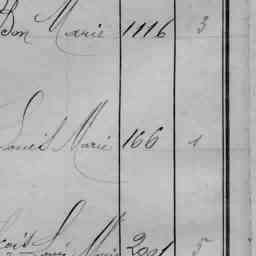 Bon Marie 1116 3
Louis Marie 166 1
Louis Marie 2091 5